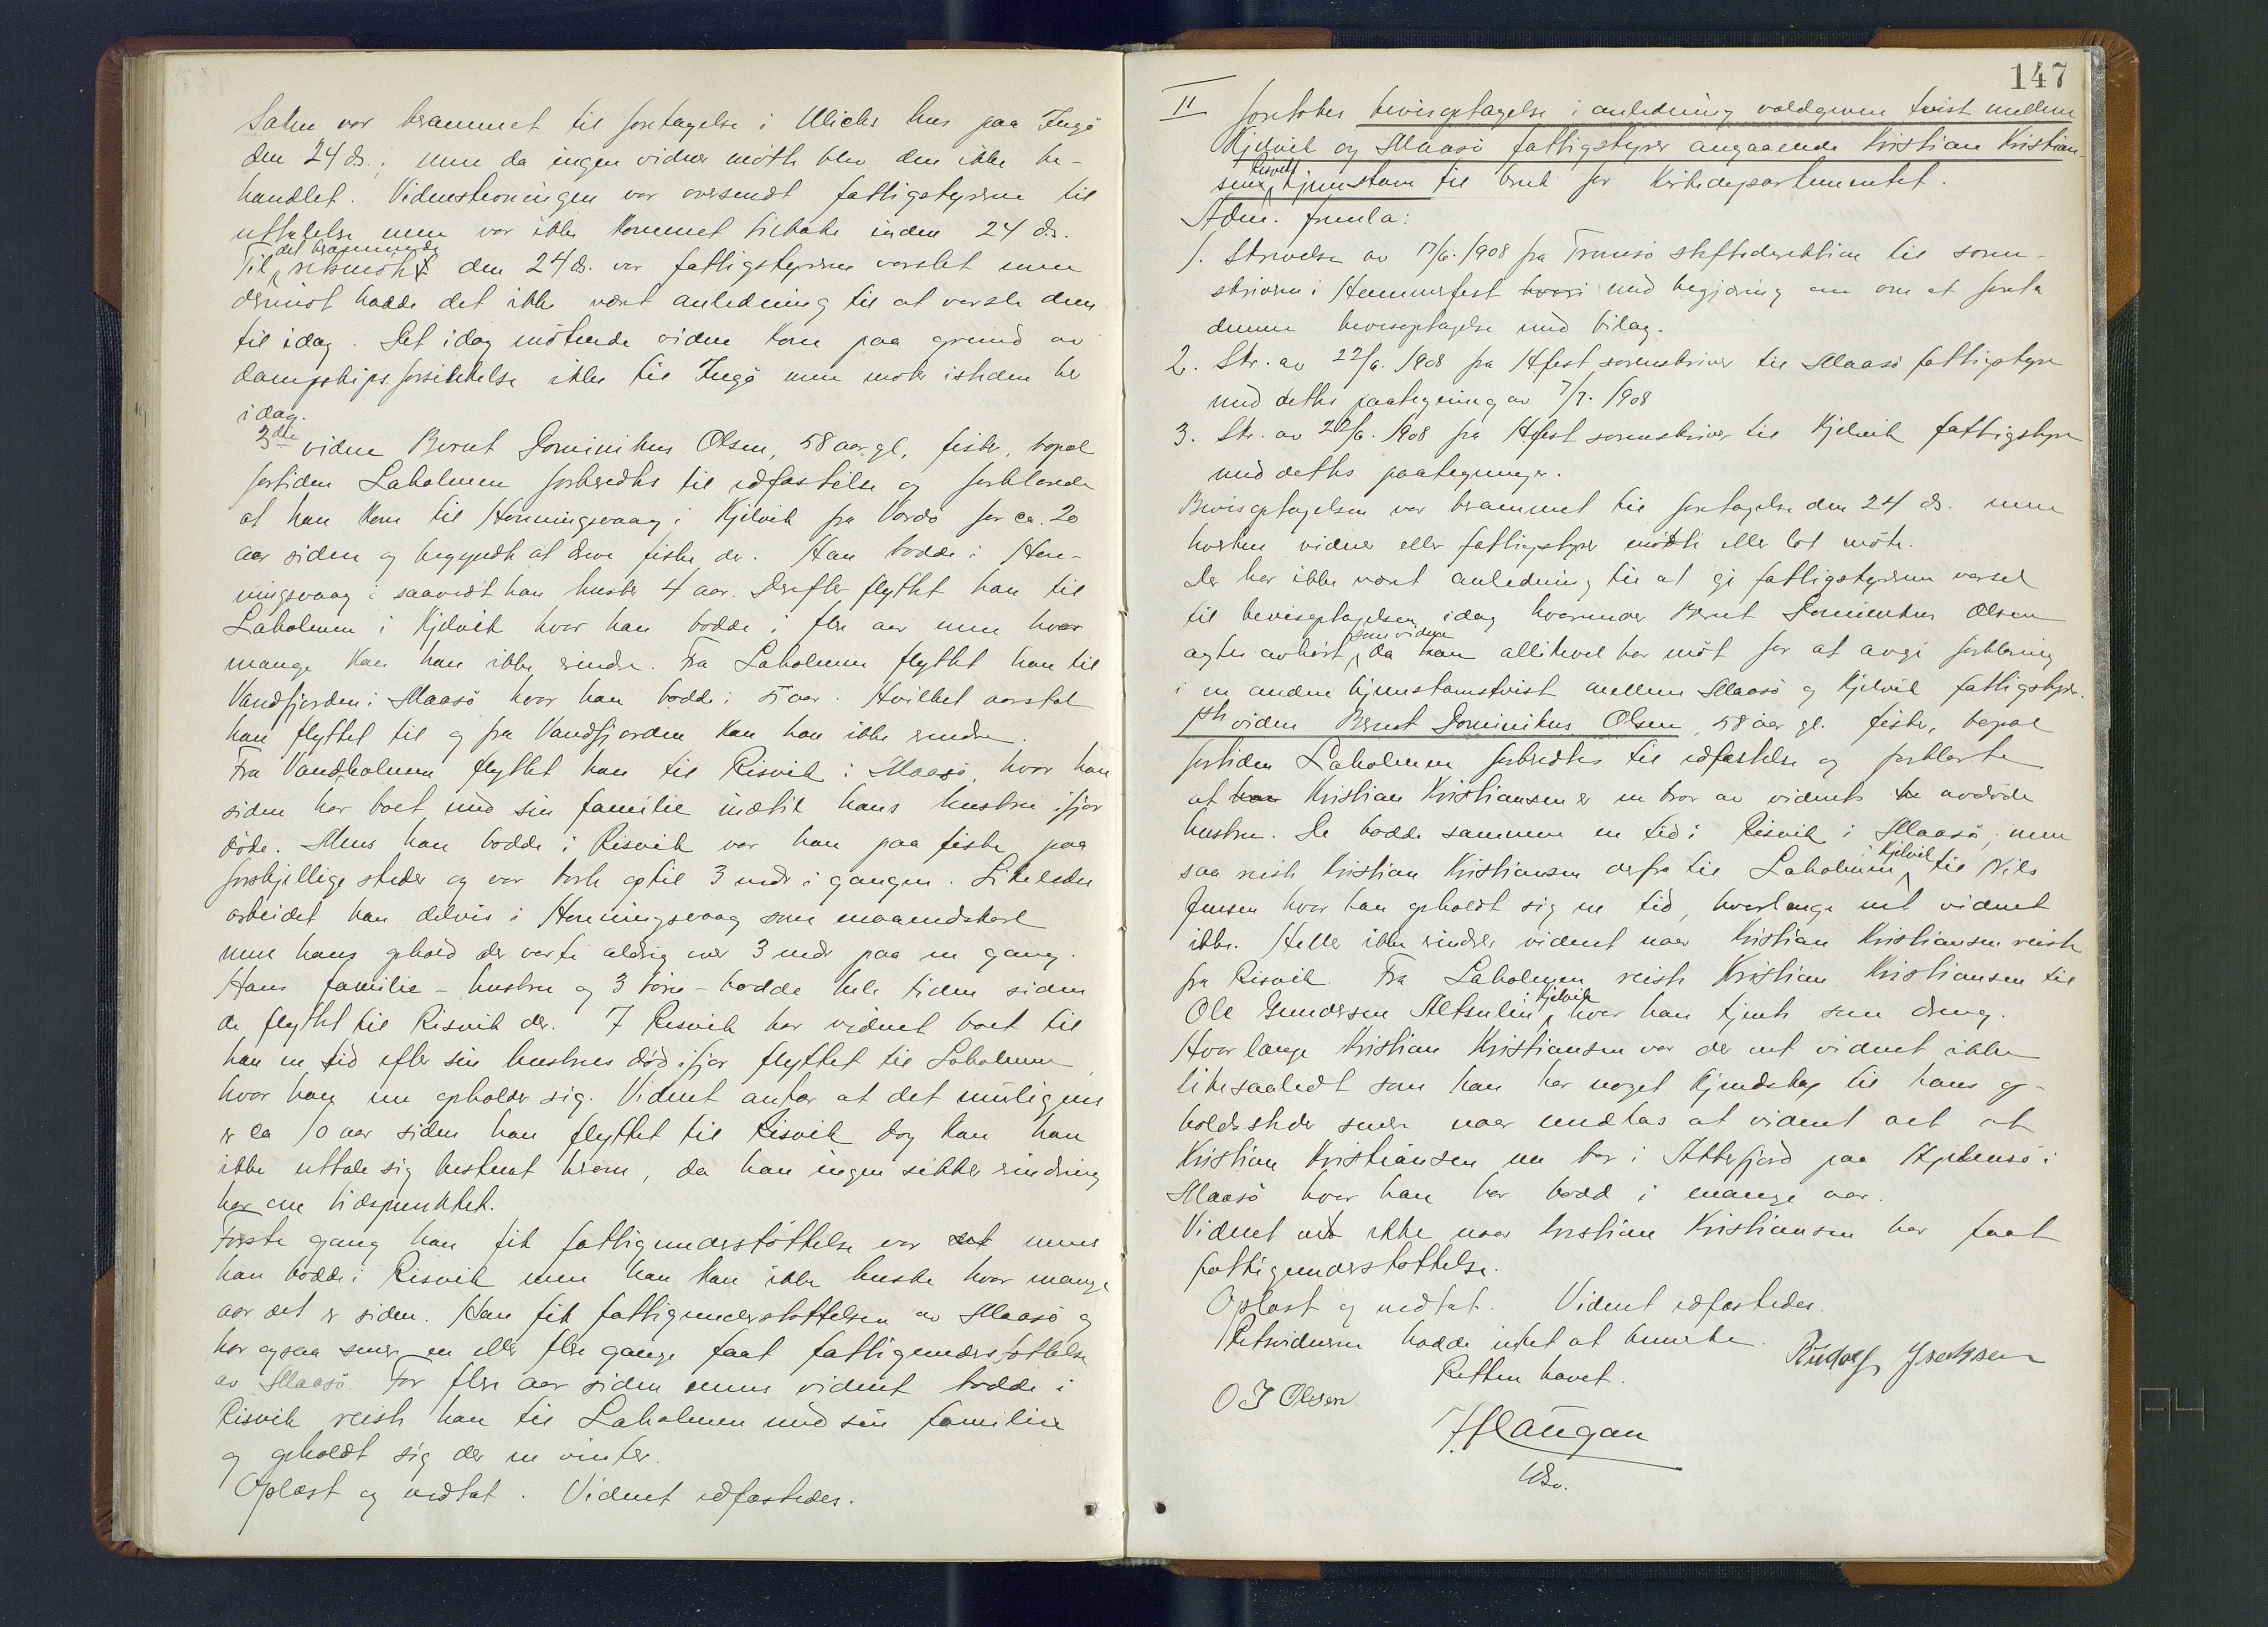 Saken var berammet til foretagelse i Ulichs hus paa Ingö
den 24 ds., men da ingen vidner mötte blev den ikke be-
handlet. Vidnestevningen var oversendt fattigstyrerne til
uttalelse men var ikke kommet tilbake inden 24 ds.
Til det berammede retsmöte den 24 ds. var fattigstyrerne varslet men
derimot hadde det ikke vært anledning til at varsle dem
til idag. Det idag mötende vidne kom paa grund av
dampskips forsinkelse ikke til Ingö men möter isteden her
idag.
3dte vidne Bernt Dominikus Olsen, 58 aar gl, fisker, bopæl
fortiden Laholmen forberedtes til edfæstelse og forklarede
at han kom til Honningsvaag i Kjelvik fra Vardö for ca. 20
aar siden og begyndte at drive fiske der. Han bodde i Hon-
ningsvaag i saavidt han husker 4 aar. Derefter flyttet han til
Laholmen i Kjelvik hvor han bodde i flere aar men hvor
mange kan han ikke erindre. Fra Laholmen flyttet han til
Vandfjorden i Maasö hvor han bodde i 5 aar. Hvilket aarstal
han flyttet til og fra Vandfjorden kan han ikke erindre.
Fra Vandholmen flyttet han til Risvik i Maasö, hvor han
siden har boet med sin familie indtil hans hustru ifjor
döde. Mens han bodde i Risvik var han paa fiske paa
forskjellige steder og var borte optil 3 mdr i gangen. Likeledes
arbeidet han delvis i Honningsvaag som maanedskarl
men hans ophold der varte aldrig over 3 mdr paa en gang.
Hans familie - hustru og 3 börn - bodde hele tiden siden
de flyttet til Risvik der. I Risvik har vidnet boet til
han en tid efter sin hustrus död ifjor flyttet til Laholmen,
hvor han nu opholder sig. Vidnet antar at det muligens
er ca 10 aar siden han flyttet til Risvik dog kan han
ikke uttale sig bestemt herom, da han ingen sikker erindring
har om tidspunktet.
Förste gang han fik fattigunderstöttelse var det mens
han bodde i Risvik men han kan ikke huske hvor mange
aar det er siden. Han fik fattigunderstöttelsen av Maasö og
har ogsaa senere en eller flere gange faat fattigunderstöttelse
av Maasö. For flere aar siden mens vidnet bodde i
Risvik reiste han til Laholmen med sin familie
og opholdt sig der en vinter.
Oplæst og vedtat. Vidnet edfæstedes.
147
II foretokes bevisoptagelse i anledning voldgiven tvist mellem
Kjelvik og Maasö fattigstyrer angaaende Kristian Kristian-
sens Risvik hjemstavn til bruk for Kirkedepartementet.
Adm. fremla:
1. Skrivelse av 17/6. 1908 fra Tromsö stiftsdirektion til soren-
skriveren i Hammerfest hvori med begjæring om at foreta
denne bevisoptagelse med bilag.
2. Skr. av 22/6. 1908 fra Hfest sorenskriver til Maasö fattigstyre
med dettes paategning av 7/7. 1908
3. Skr. av 22/6. 1908 fra Hfest sorenskriver til Kjelvik fattigstyre
med dettes paategninger.
Bevisoptagelsen var berammet til foretagelse den 24 ds. men
hverken vidner eller fattigstyrer mötte eller lot möte.
Der har ikke vært anledning til at gi fattigstyrerne varsel
til bevisoptagelsen idag hvorunder Bernt Dominikus Olsen
agtes avhört som vidne da han allikevel har möt for at avgi forklaring
i en anden hjemstavnstvist mellem Maasö og Kjelvik fattigstyrer.
1ste vidne Bernt Dominikus Olsen, 58 aar gl. fisker, bopæl
fortiden Laholmen forberedtes til edfæstelse og forklarte
at han Kristian Kristiansen er en bror av vidnets avdöde
hustru. De bodde sammen en tid i Risvik i Maasö, men
saa reiste Kristian Kristiansen derfra til Laholmen i Kjelvik til Nils
Jensen hvor han opholdt sig en tid, hvorlænge vet vidnet
ikke. Heller ikke erindrer vidnet naar Kristian Kristiansen reiste
fra Risvik. Fra Laholmen reiste Kristian Kristiansen til
Ole Gundersen Altsulen i Kjelvik, hvor han tjente som dreng.
Hvor længe Kristian Kristiansen var der vet vidnet ikke
likesaalidt som han har noget kjendskap til hans op-
holdssteder senere naar undtas at vidnet vet at
Kristian Kristiansen nu bor i Akkarfjord paa Hjelmsö i
Maasö hvor han har bodd i mange aar.
Vidnet vet ikke naar Kristian Kristiansen har faat
fattigunderstöttelse.
Oplæst og vedtat. Vidnet edfæstedes.
Retsvidnerne hadde intet at bemerke.
Retten hævet.
Rudolf Isaksen
O J Olsen
J Haugan